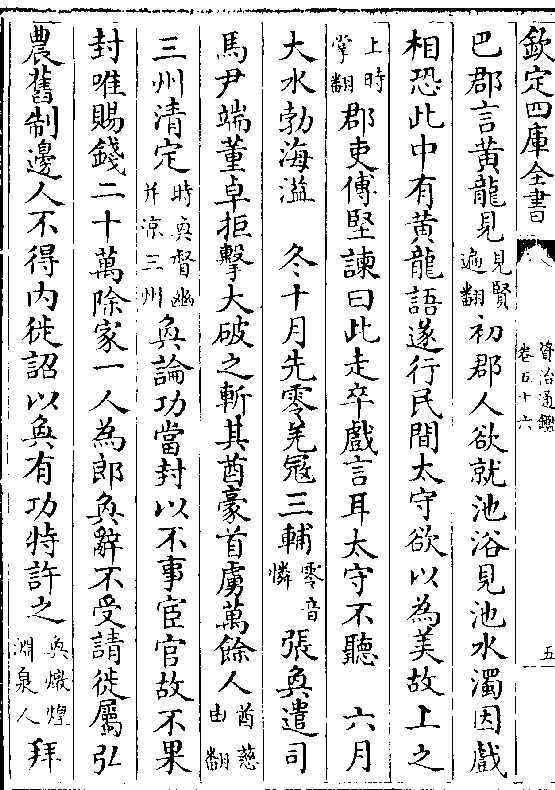 欽定四庫全書
資治通鑑
卷五十六
五
巴郡言黄龍見見賢遍翻初郡人欲就池浴見池水濁因戲
相恐此中有黄龍語遂行民間太守欲以為美故上之
上時掌翻郡吏傅堅諫曰此走卒戲言耳太守不聽　六月
大水勃海溢　冬十月先零羌冦三輔零音憐張奐遣司
馬尹端董卓拒擊大破之斬其酋豪首虜萬餘人酋慈由翻
三州清定時奐督幽并涼三州奐論功當封以不事宦官故不果
封唯賜錢二十萬除家一人為郎奐辭不受請徙屬弘
農舊制邊人不得内徙詔以奐有功特許之奐燉煌淵泉人拜